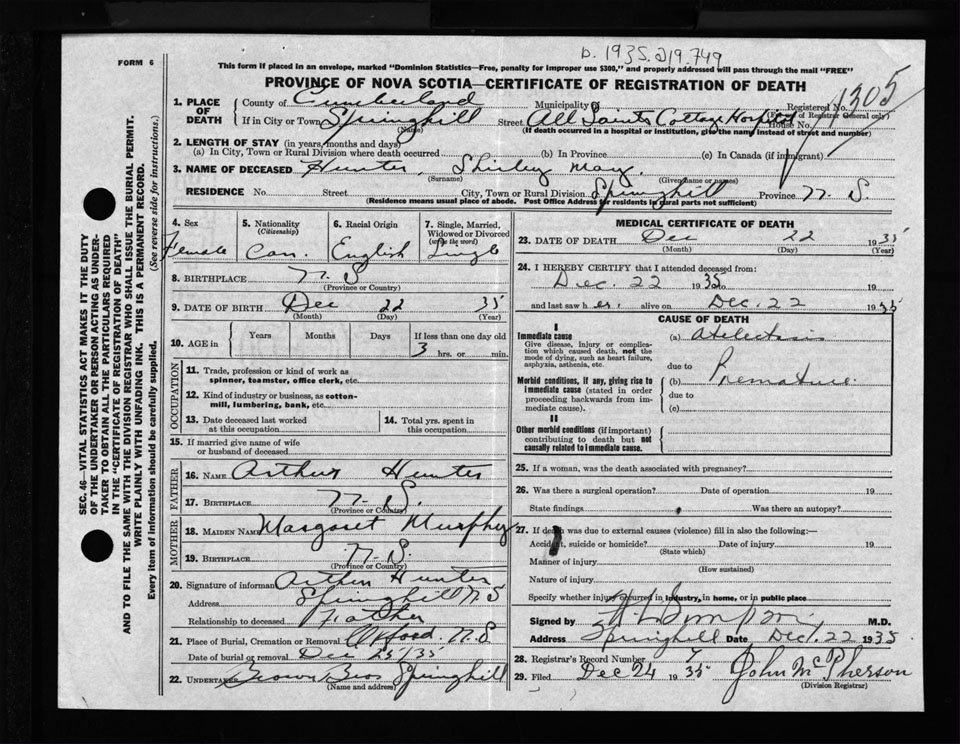 b. 1935.219.749
FORM 6
This form if placed in an envelope, marked "Dominion Statistics—Free, penalty for improper use $300," and properly addressed will pass through the mail "FREE"
PROVINCE OF NOVA SCOTIA—CERTIFICATE OF REGISTRATION OF DEATH
1. PLACE OF DEATH
County of Cumberland Municipality of Registered No. 1305
(For use of Registrar General only)
If in City or Town Springhill Street All Saints Cottage Hospital House No.
(Name) (If death occurred in a hospital or institution, give the name instead of street and number)
2. LENGTH OF STAY (in years, months and days)
(a) In City, Town or Rural Division where death occurred (b) In Province (c) In Canada (if immigrant)
3. NAME OF DECEASED Hunter, Shirley May.
(Surname) (Given name or names)
RESIDENCE No. Street City, Town or Rural Division Springhill Province N. S.
(Residence means usual place of abode. Post Office Address for residents in rural parts not sufficient)
4. Sex Female
5. Nationality (Citizenship) Can.
6. Racial Origin English
7. Single, Married, Widowed or Divorced (write the word) Single
8. BIRTHPLACE N. S
(Province or Country)
9. DATE OF BIRTH Dec 22 35
(Month) (Day) (Year)
10. AGE in Years Months Days If less than one day old
3 hrs. or min.
OCCUPATION
11. Trade, profession or kind of work as spinner, teamster, office clerk, etc.
12. Kind of industry or business, as cotton-mill, lumbering, bank, etc.
13. Date deceased last worked at this occupation
14. Total yrs. spent in this occupation
15. If married give name of wife or husband of deceased
FATHER
16. NAME Arthur Hunter
17. BIRTHPLACE N. S.
(Province or Country)
MOTHER
18. MAIDEN NAME Margaret Murphy
19. BIRTHPLACE N. S.
(Province or Country)
20. Signature of informant Arthur Hunter
Address Springhill N S
Relationship to deceased Father
21. Place of Burial, Cremation or Removal Oxford. N. S
Date of burial or removal Dec 25/35
22. UNDERTAKER Brown Bros Springhill
(Name and address)
MEDICAL CERTIFICATE OF DEATH
23. DATE OF DEATH Dec 22 1935
(Month) (Day) (Year)
24. I HEREBY CERTIFY that I attended deceased from:
Dec. 22 1935 to 19
and last saw h er, alive on Dec. 22 1935
CAUSE OF DEATH
I
Immediate cause
Give disease, injury or complication which caused death, not the mode of dying, such as heart failure, asphyxia, asthenia, etc.
(a)
due to
Morbid conditions, if any, giving rise to immediate cause (stated in order proceeding backwards from immediate cause).
(b) Premature.
due to
(c)
II
Other morbid conditions (if important) contributing to death but not causally related to immediate cause.
25. If a woman, was the death associated with pregnancy?
26. Was there a surgical operation? Date of operation 19
State findings Was there an autopsy?
27. If death was due to external causes (violence) fill in also the following:—
Accident, suicide or homicide? Date of injury 19
(State which)
Manner of injury
(How sustained)
Nature of injury
Specify whether injury occurred in industry, in home, or in public place
Signed by M.D.
Address Springhill Date Dec. 22 1935
28. Registrar's Record Number 7
29. Filed Dec 24 1935 John McPherson
(Division Registrar)
SEC. 46—VITAL STATISTICS ACT MAKES IT THE DUTY
OF THE UNDERTAKER OR PERSON ACTING AS UNDER-
TAKER TO OBTAIN ALL THE PARTICULARS REQUIRED
IN THE "CERTIFICATE OF REGISTRATION OF DEATH"
AND TO FILE THE SAME WITH THE DIVISION REGISTRAR WHO SHALL ISSUE THE BURIAL PERMIT.
WRITE PLAINLY WITH UNFADING INK. THIS IS A PERMANENT RECORD.
Every item of information should be carefully supplied. (See reverse side for instructions.)